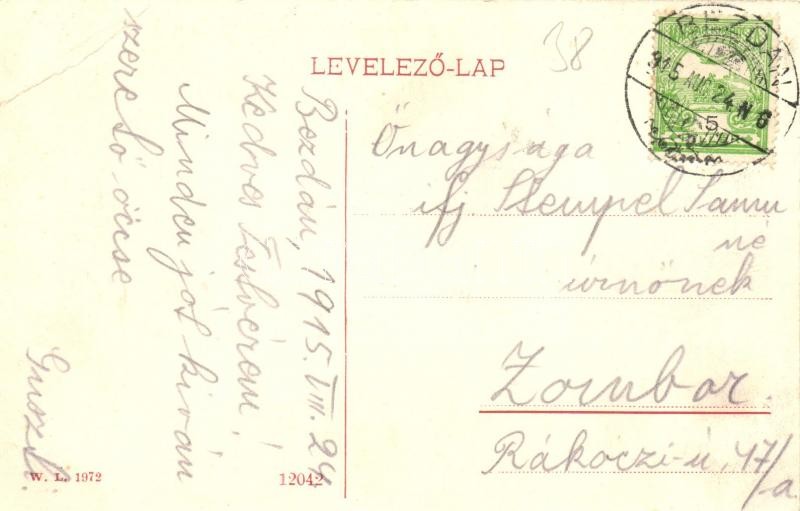 LEVELEZŐ-LAP
38
BEZDÁN
915 AUG 24 N 6
5
Bezdán, 1915. VIII. 24.
Kedves Testvérem!
Minden jót kíván
szerető öccse
Guszti.
Őnagysága
ifj. Stempel Samu
né
úrnőnek
Zombor.
Rákóczi-u. 47/a.
W. L. 1972
12042